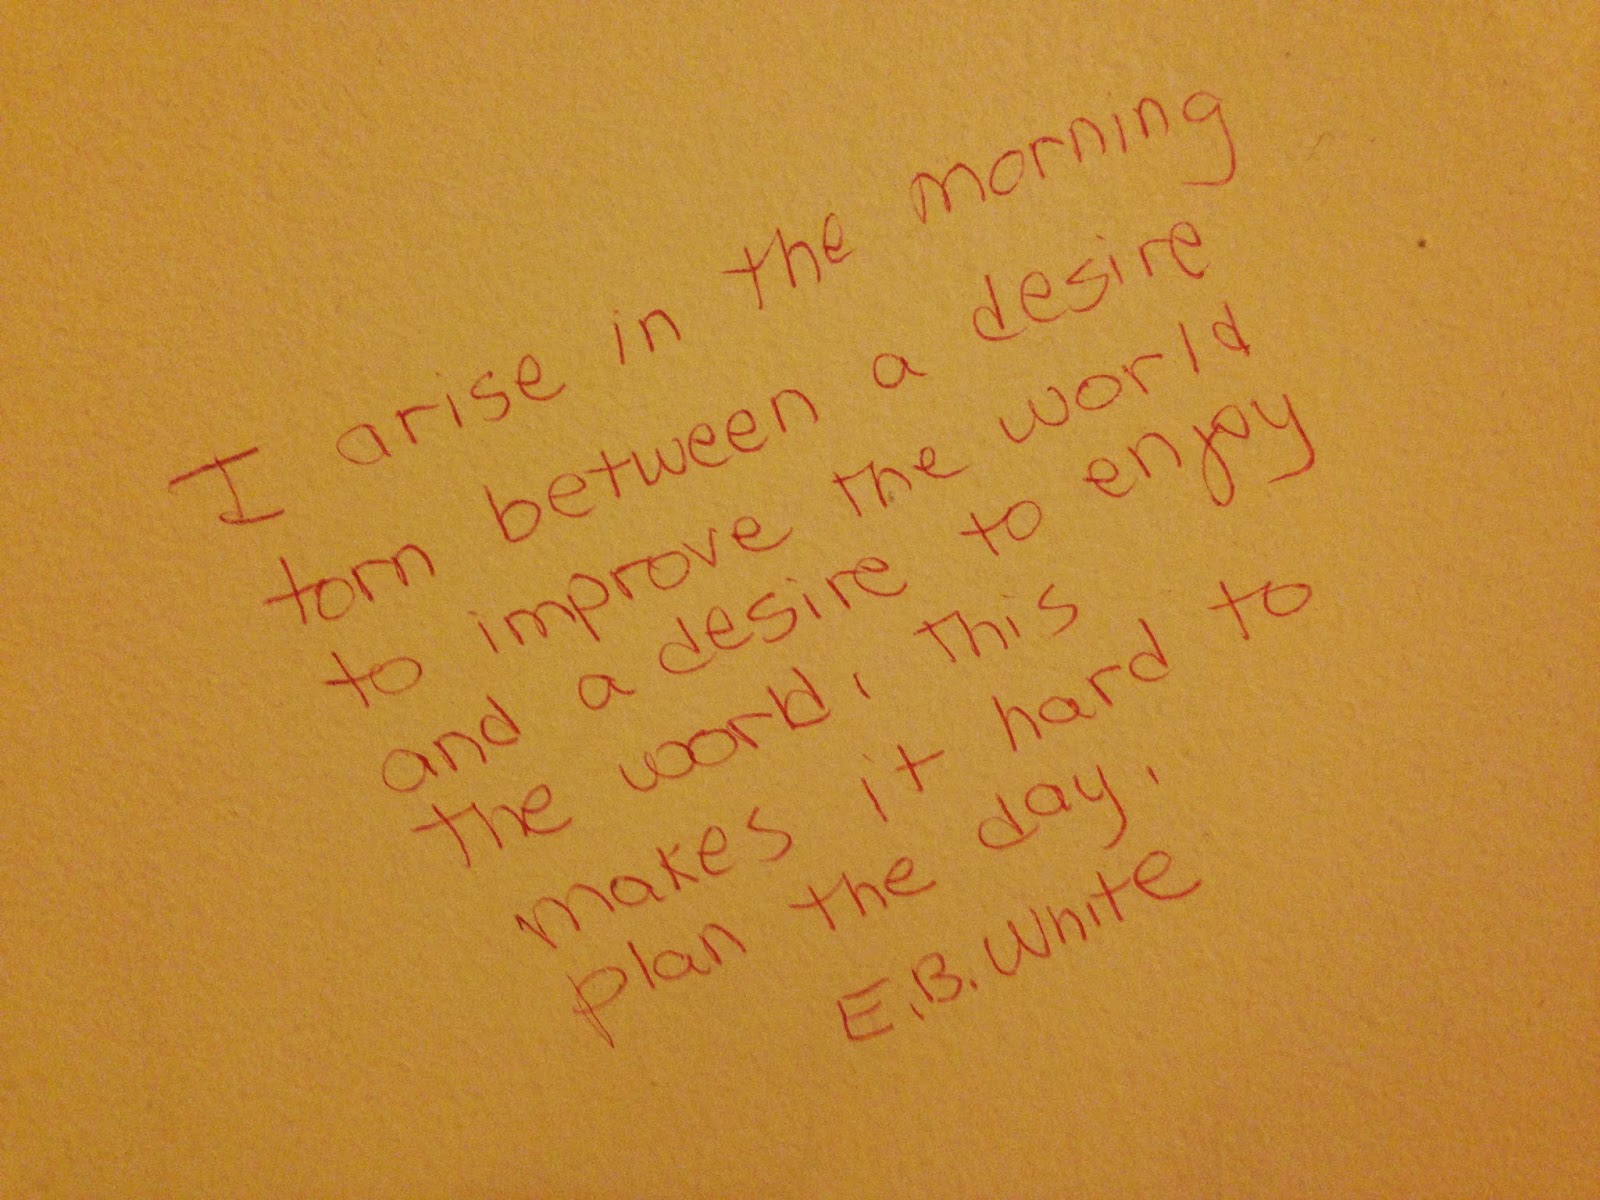 I arise in the morning
torn between a desire
to improve the world
and a desire to enjoy
the world, this
makes it hard to
plan the day.
E.B. White